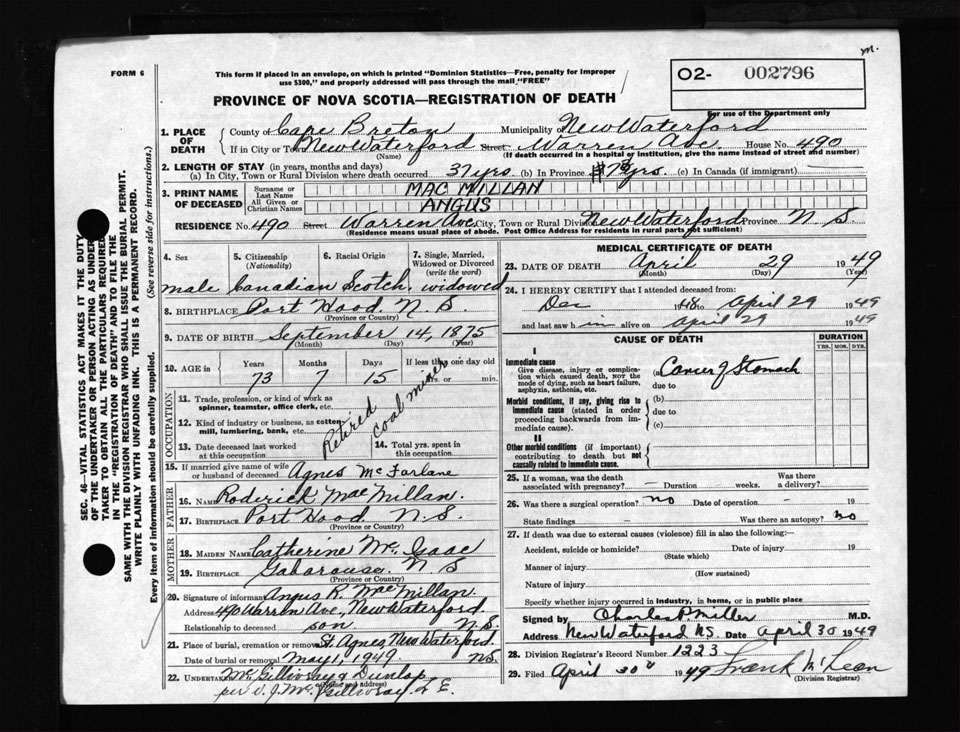 m.
FORM 6
This form if placed in an envelope, on which is printed "Dominion Statistics—Free, penalty for improper
use $300," and properly addressed will pass through the mail "FREE"
O2- 002796
For use of the Department only
PROVINCE OF NOVA SCOTIA—REGISTRATION OF DEATH
1. PLACE OF DEATH
County of Cape Breton Municipality of New Waterford
If in City or Town New Waterford Street Warren Ave. House No. 490
(Name) (If death occurred in a hospital or institution, give the name instead of street and number)
2. LENGTH OF STAY (in years, months and days)
(a) In City, Town or Rural Division where death occurred 37 yrs. (b) In Province 73 yrs. (c) In Canada (if immigrant)
3. PRINT NAME OF DECEASED
Surname or Last Name MAC MILLAN
All Given or Christian Names ANGUS
RESIDENCE No. 490 Street Warren Ave City, Town or Rural Division New Waterford Province N. S
(Residence means usual place of abode. Post Office Address for residents in rural parts not sufficient)
4. Sex
5. Citizenship (Nationality)
6. Racial Origin
7. Single, Married, Widowed or Divorced (write the word)
male Canadian Scotch. widowed
8. BIRTHPLACE Port Hood N. S.
(Province or Country)
9. DATE OF BIRTH September 14, 1875
(Month) (Day) (Year)
10. AGE in Years Months Days If less than one day old
73 7 15 hrs. or min.
OCCUPATION
11. Trade, profession, or kind of work as
spinner, teamster, office clerk, etc.
12. Kind of industry or business, as cotton
mill, lumbering, bank, etc.
Retired coal miner
13. Date deceased last worked
at this occupation
14. Total yrs. spent in
this occupation
15. If married give name of wife
or husband of deceased Agnes McFarlane
FATHER
16. NAME Roderick MacMillan.
17. BIRTHPLACE Port Hood N. S.
(Province or Country)
MOTHER
18. MAIDEN NAME Catherine Mc Isaac
19. BIRTHPLACE Gabarouse. N. S
(Province or Country)
20. Signature of informant Angus R. MacMillan.
Address 490 Warren Ave., New Waterford.
Relationship to deceased son N.S.
21. Place of burial, cremation or removal St. Agnes, New Waterford.
Date of burial or removal May 1, 1949. N.S.
22. Undertaker McGillivray & Dunlop
(Name and address)
per V. J. McGillivray L. E.
MEDICAL CERTIFICATE OF DEATH
23. DATE OF DEATH April 29 1949
(Month) (Day) (Year)
24. I HEREBY CERTIFY that I attended deceased from:
Dec 1948 to April 29 1949
and last saw him alive on April 29 1949
CAUSE OF DEATH
DURATION
YRS. MOS. DYS.
I
Immediate cause
Give disease, injury or complica-
tion which caused death, NOT the
mode of dying, such as heart failure,
asphyxia, asthenia, etc.
(a) Cancer of Stomach
due to
Morbid conditions, if any, giving rise to
immediate cause (stated in order
proceeding backwards from im-
mediate cause).
(b)
due to
(c)
II
Other morbid conditions (if important)
contributing to death but not
causally related to immediate cause.
25. If a woman, was the death
associated with pregnancy? – Duration – weeks. Was there
a delivery? –
26. Was there a surgical operation? no Date of operation – 19
State findings – Was there an autopsy? no
27. If death was due to external causes (violence) fill in also the following:
Accident, suicide or homicide? Date of injury 19
(State which)
Manner of injury
(How sustained)
Nature of injury
Specify whether injury occurred in industry, in home, or in public place
Signed by Charles P. Miller M.D.
Address New Waterford N.S. Date April 30 1949
28. Division Registrar's Record Number 1223
29. Filed April 30th 1949 Frank McLean
(Division Registrar)
SEC. 46—VITAL STATISTICS ACT MAKES IT THE DUTY
OF THE UNDERTAKER OR PERSON ACTING AS UNDER-
TAKER TO OBTAIN ALL THE PARTICULARS REQUIRED
IN THE "REGISTRATION OF DEATH" AND TO FILE THE
SAME WITH THE DIVISION REGISTRAR WHO SHALL ISSUE THE BURIAL PERMIT.
WRITE PLAINLY WITH UNFADING INK. THIS IS A PERMANENT RECORD.
Every item of information should be carefully supplied. (See reverse side for instructions.)